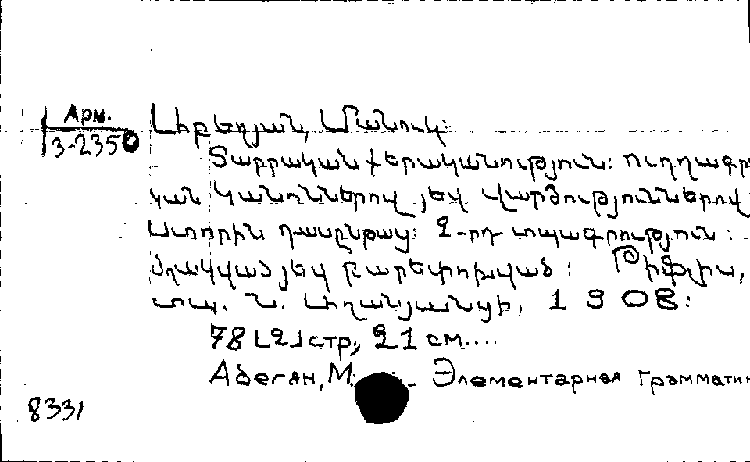 Арм.
3-2350
Աբեղյան, Մանուկ:
Տարրական քերականություն: ուղղագր
կան կանոններով յեվ վարժություններով
Ստորին դասընթաց: 2-րդ տպագրություն:
Ձղակված յեվ բարեփոխված: Թիֆլիս,
տպ. Ն. Աղանյանցի, 1908:
78 [2] стр, 21 см....
Абегян, М. Элементарная грамматик
8331